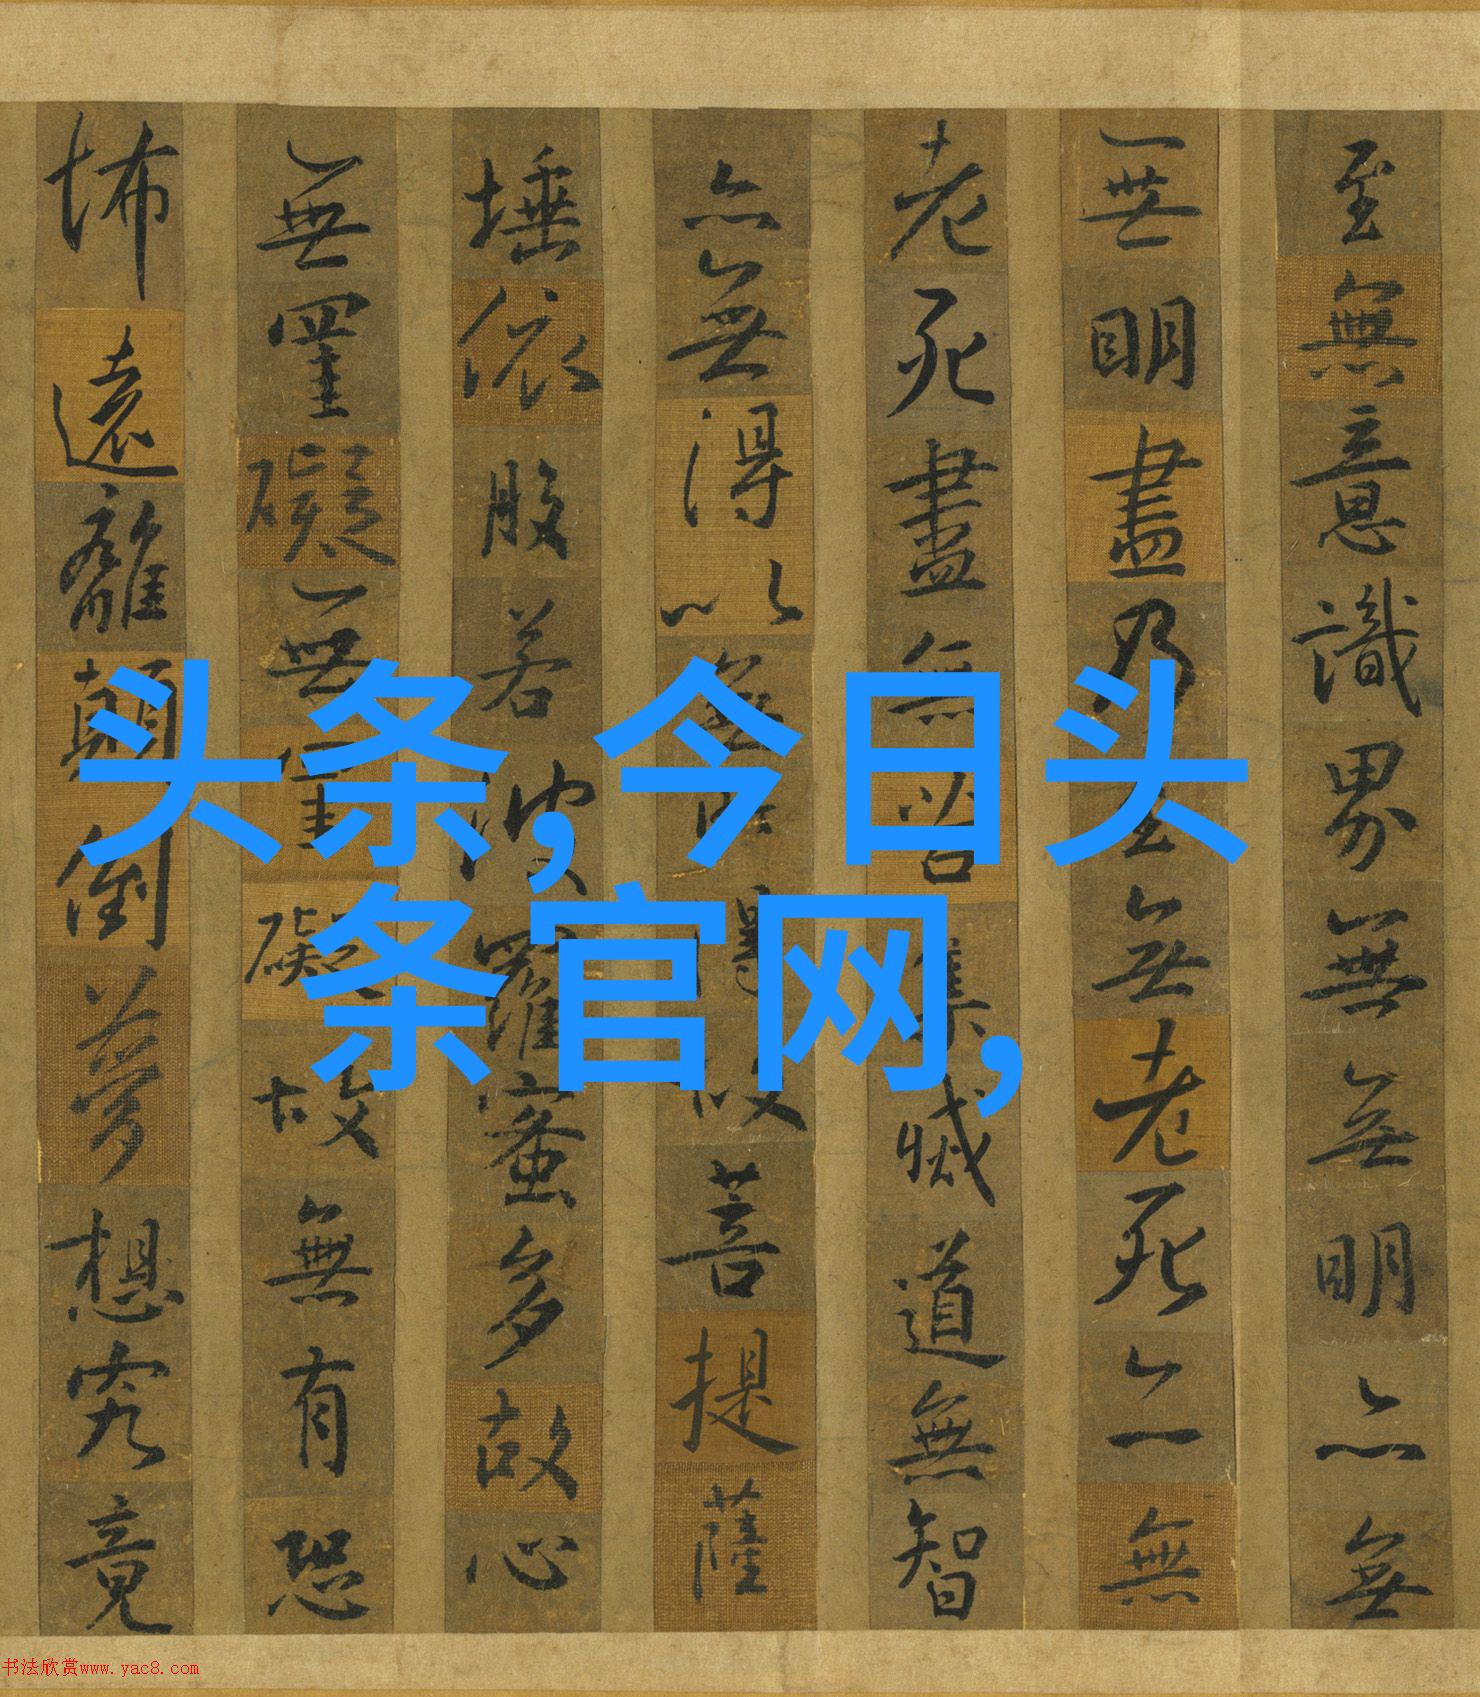 至無意識界無無明亦無
無明盡乃至無老死亦無
老死盡無苦集滅道無智
亦無得以無所得故菩提薩
埵依般若波羅蜜多故心
無罣礙無罣礙故無有恐
怖遠離顛倒夢想究竟
头条,今日头
条官网,
书法欣赏www.yac8.com